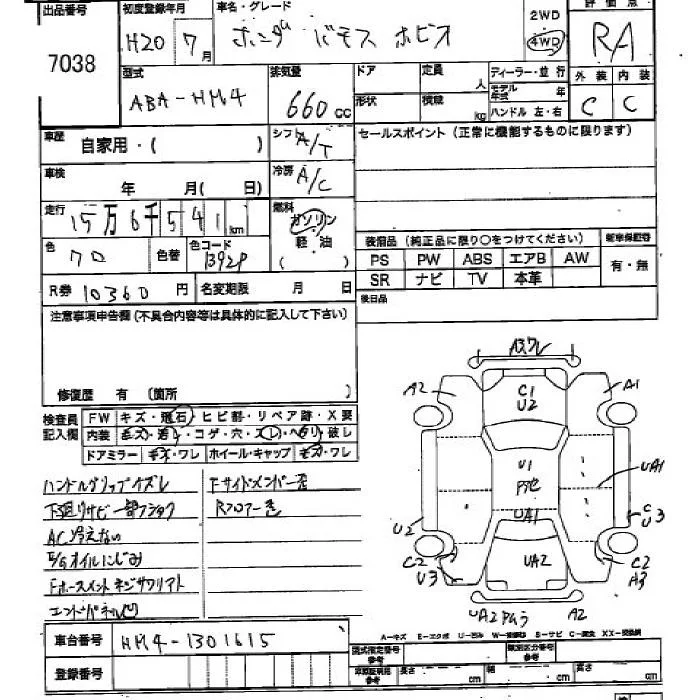 出品番号 初度登録年月 車名・グレード 2WD 評価点
7038 H20 7月 ホンダ バモス ホビオ 4WD RA
型式 排気量 ドア 定員 人 ディーラー・並行 外装 内装
ABA-HM4 660cc 形状 積載 kg モデル年式 年 C C
ハンドル 左・右
車歴 自家用・( ) シフト A/T セールスポイント(正常に機能するものに限ります)
車検 年 月( 日) 冷房 A/C
走行 15万6千541km 燃料 ガソリン
軽油
( )
色 色替 色コード 装備品(純正品に限り○をつけてください) 新車保証書
PS PW ABS エアB AW 有・無
SR ナビ TV 本革
R券 10360円 名変期限 月 日 後日品
注意事項申告欄(不具合内容等は具体的に記入して下さい)
修復歴 有 (箇所 )
検査員 FW キズ・飛石・ヒビ割・リペア跡・X要
記入欄 内装 コゲ・穴・スレ・ヘタリ・破レ
ドアミラー キズ・ワレ ホイール・キャップ キズ・ワレ
ハンドルグリップスレ Fサイドメンバー歪
下廻りサビ一部フショク Rフロアー歪
AC冷えない
E/Gオイルにじみ
エンドパネル凹
A2 C1 A1
U2
U1
UA1 UA1
U2 C U3
C2 UA2 C2
U3 A3
A2
A-キズ E-エクボ U-凹み S-サビ C-腐食 XX-交換済
車台番号 HM4-1301615 型式指定番号 参考 類別区分番号 参考
登録番号 長さ cm 幅 cm 高さ cm